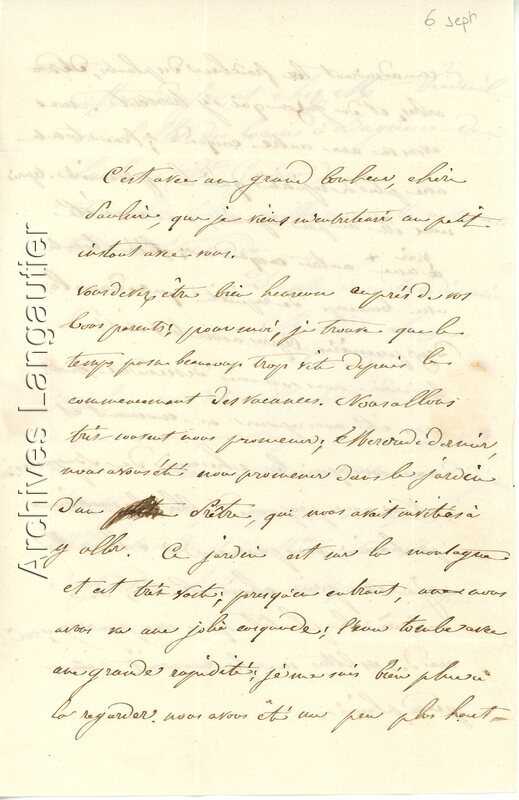 6 sept
C'est avec un grand bonheur, chère
Pauline, que je viens m'entretenir un petit
instant avec vous.
Vous devez être bien heureuse auprès de vos
bons parents; pour moi, je trouve que le
temps passe beaucoup trop vite depuis le
commencement des vacances. Nous allons
très souvent nous promener; Mercredi dernier,
nous avons été nous promener dans le jardin
d'un Prêtre, qui nous avait invitées à
y aller. Ce jardin est sur la montagne
et est très vaste; presqu'en entrant, nous
avons vu une jolie cascade; l'eau tombe avec
une grande rapidité; je me suis bien plue à
la regarder. nous avons été un peu plus haut
Archives Langautier